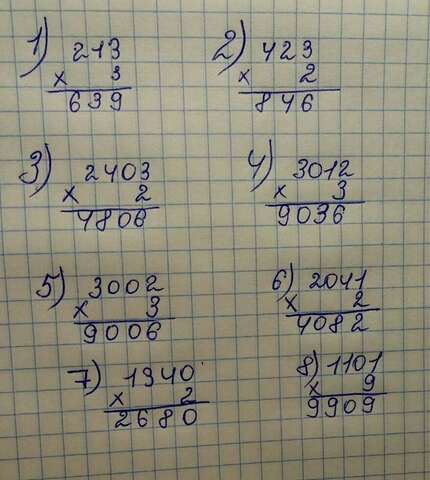 1) 213
x 3
639
2) 423
x 2
846
3) 2403
x 2
4806
4) 3012
x 3
9036
5) 3002
x 3
9006
6) 2041
x 2
4082
7) 1340
x 2
2680
8) 1101
x 9
9909